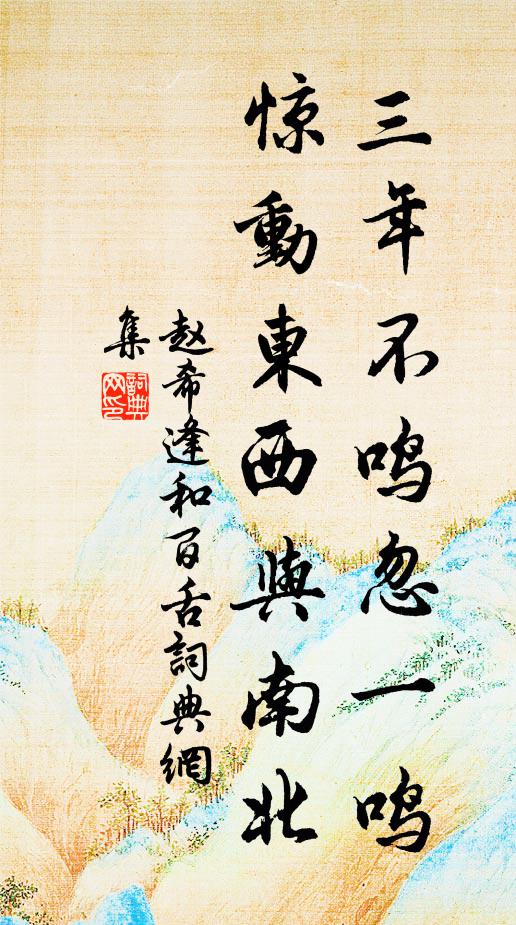 三年不鸣忽一鸣
惊動東西與南北
赵希逢和百舌詞典網
集
詞典網印